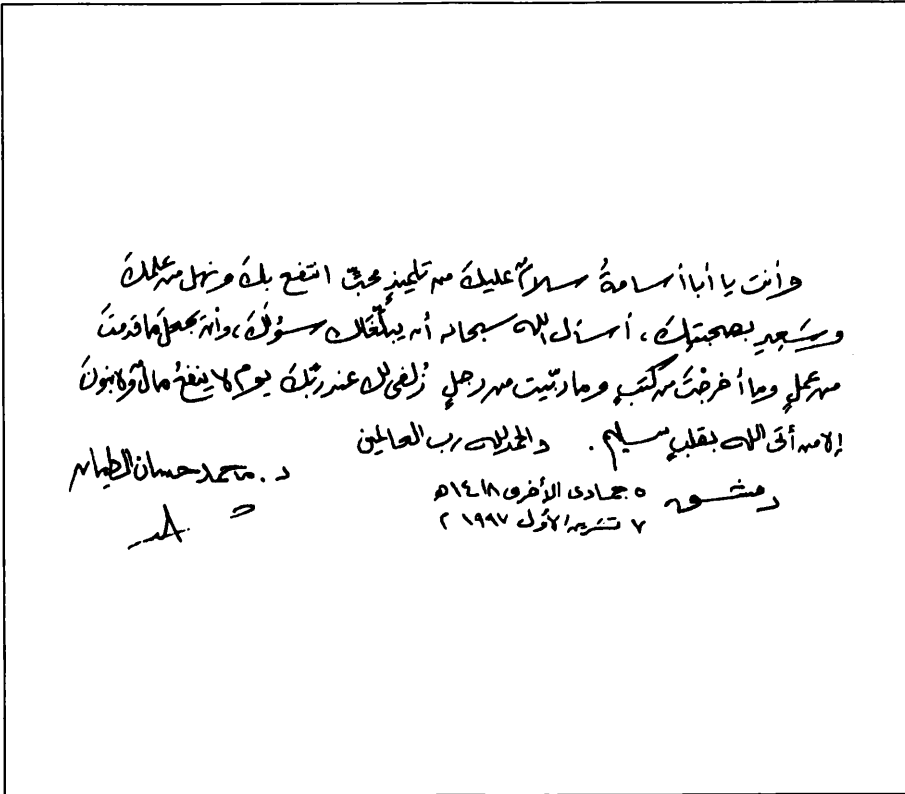 وأنت يا أبا أسامةُ سلامٌ عليكَ من تلميذٍ محبٍّ انتفع بكَ ونهل من علمكَ
وسَعِدِ بصحبتِكَ، أسأل الله سبحانه أن يبلّغَك سُؤلَكَ، وأن يجعلَ ما قدمتَ
من عملٍ وما أخرجْتَ من كتبٍ وما ربّيت من رجلٍ زُلفى لك عند ربّكَ يوم لا ينفعُ مالٌ ولا بنونَ
إلا من أتى الله بقلبٍ سليمٍ. والحمد لله رب العالمين
د. محمد حسان الطيان
دمشق ٥ جمادى الأخرى ١٤١٨هـ
٧ تشرين الأول ١٩٩٧ م